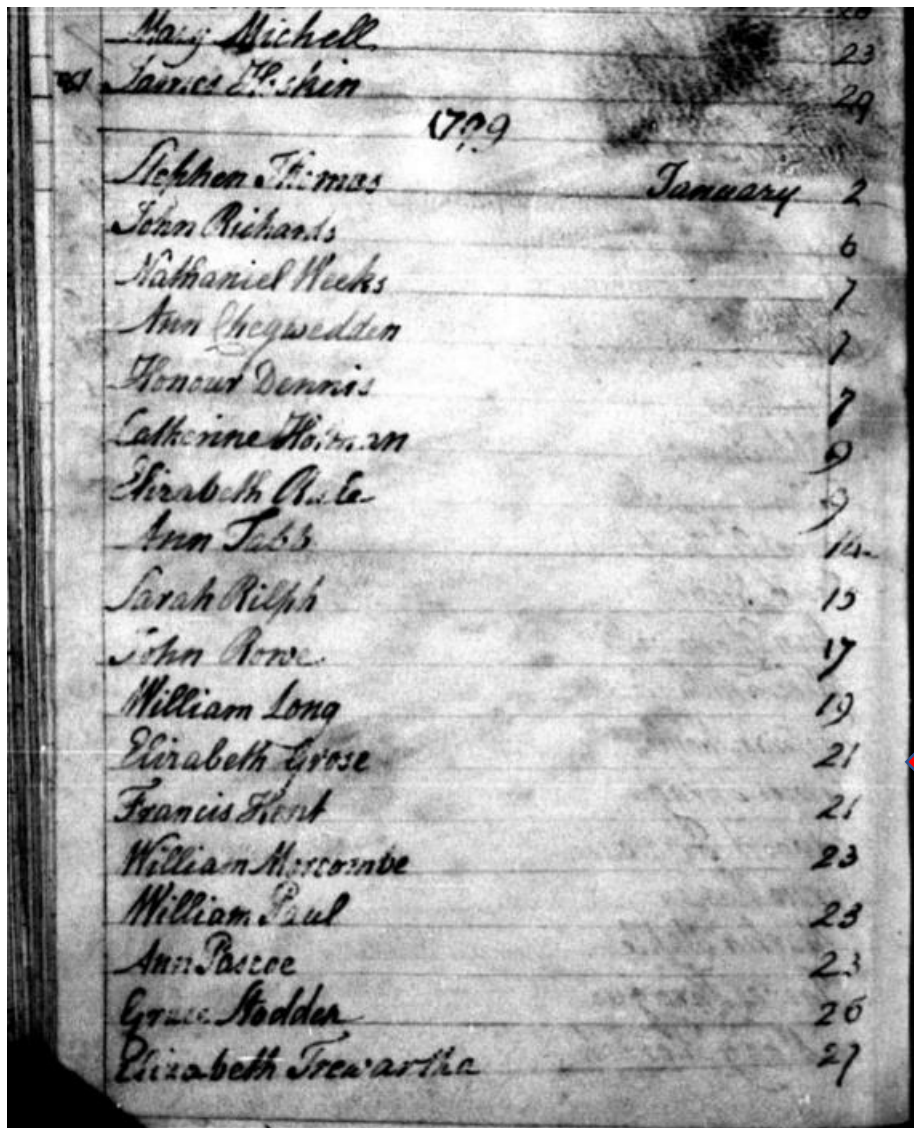 Mary Michell 23
James Hoskin 29
1799
Stephen Thomas January 2
John Richards 6
Nathaniel Weeks 7
Ann Chegwedden 7
Honour Dennis 7
Catherine Holman 9
Elizabeth 9
Ann Tabb 14
Sarah Rilph 15
John Rowe 17
William Long 19
Elizabeth Grose 21
Francis Kent 21
William Morcombe 23
William Paul 23
Ann Pascoe 23
Grace Stodden 26
Elizabeth Trewartha 27